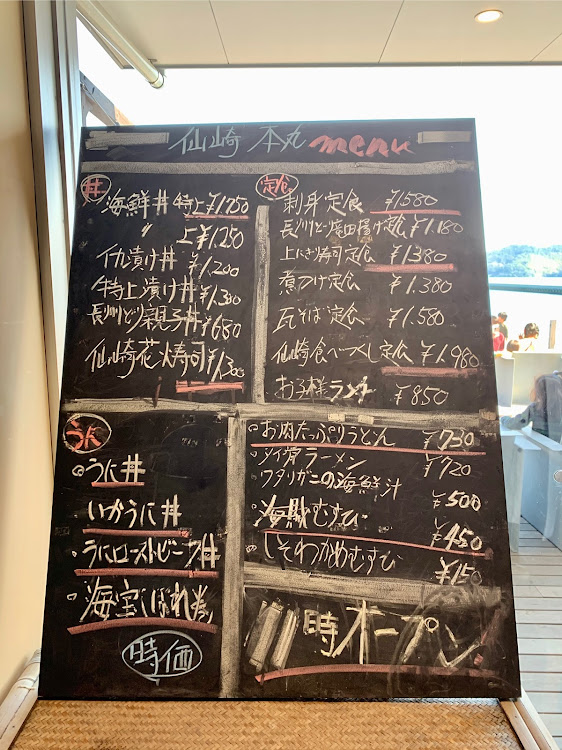 仙崎 本丸 menu
丼
海鮮丼 特上 ¥1,750
〃 上 ¥1,250
イカ漬け丼 ¥1,200
特上漬け丼 ¥1,300
長州どり親子丼 ¥680
仙崎花火寿司 ¥1,300
定食
刺身定食 ¥1,580
長州どり竜田揚げ定食 ¥1,180
上にぎり寿司定食 ¥1,380
煮つけ定食 ¥1,380
瓦そば定食 ¥1,580
仙崎食べつくし定食 ¥1,980
お子様ランチ ¥850
うに
うに丼
いかうに丼
うにローストビーフ丼
海宝こぼれ巻
時価
お肉たっぷりうどん ¥730
タイ骨ラーメン ¥720
ワタリガニの海鮮汁 ¥500
海賊むすび ¥450
しそわかめむすび ¥150
11時オープン